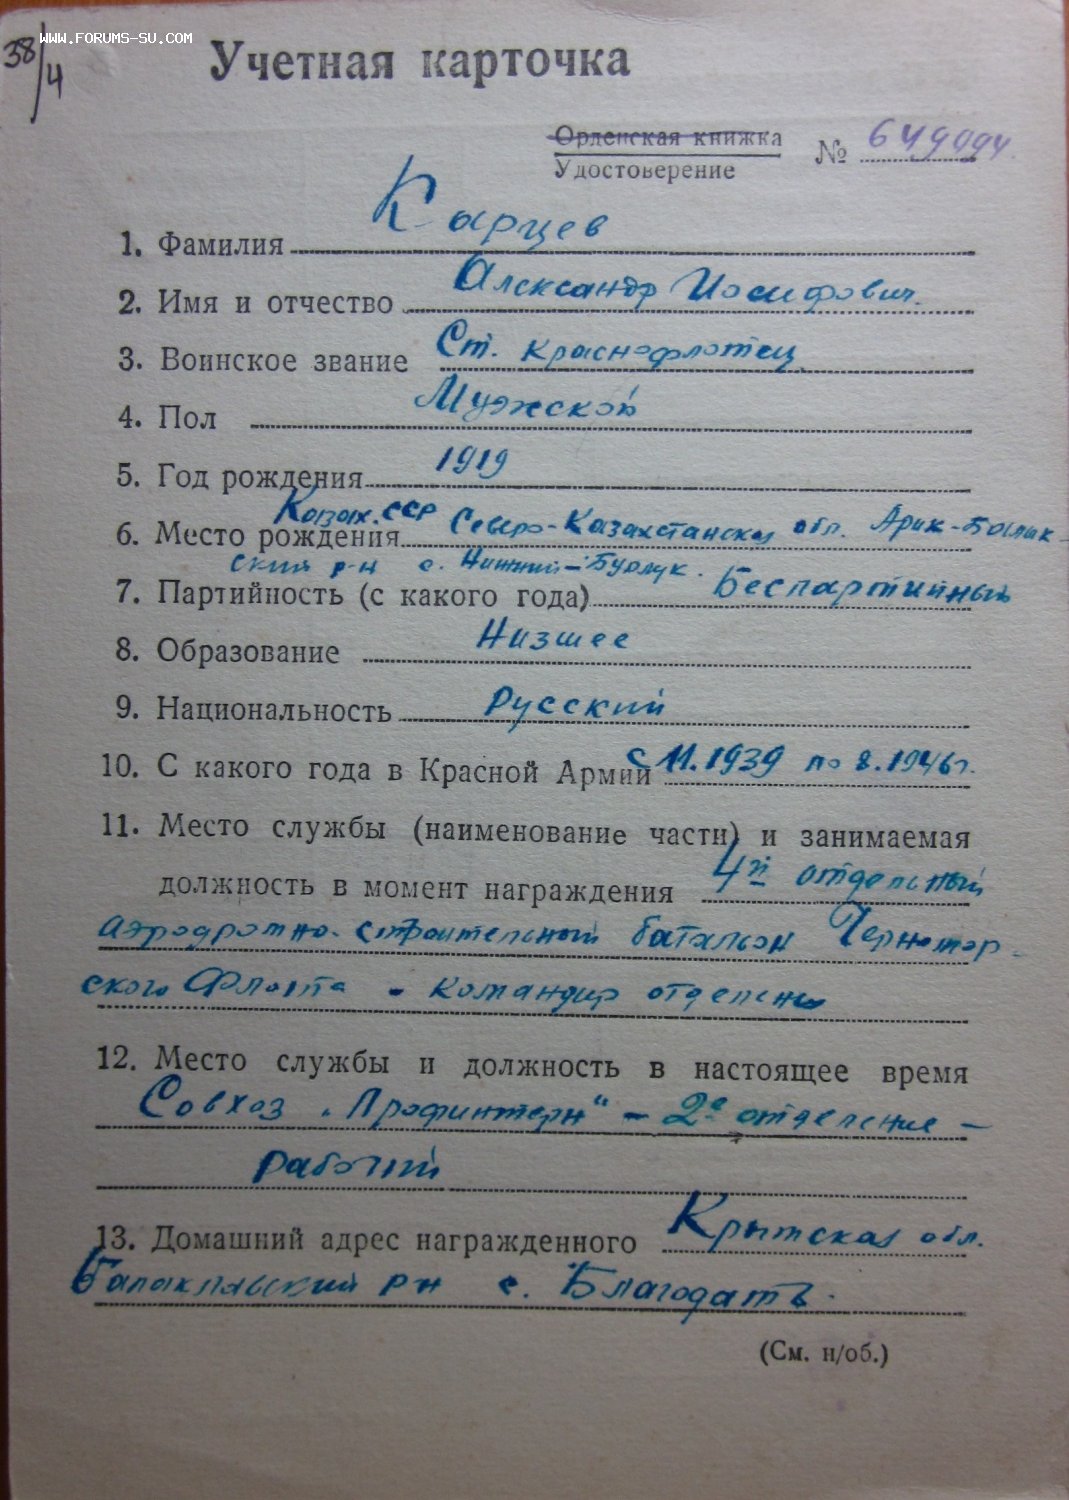 WWW.FORUMS-SU.COM
38/4
Учетная карточка
Орденская книжка
Удостоверение № 649994
1. Фамилия Карцев
2. Имя и отчество Александр Иосифович.
3. Воинское звание Ст. краснофлотец
4. Пол Мужской
5. Год рождения 1919
6. Место рождения Казах. ССР Северо-Казахстанская обл. Арик-Балик-
ский р-н с. Нижний-Бурлук.
7. Партийность (с какого года) Беспартийный
8. Образование Низшее
9. Национальность Русский
10. С какого года в Красной Армии с 11.1939 по 8.1946г.
11. Место службы (наименование части) и занимаемая
должность в момент награждения 4й отдельный
аэродромно-строительный батальон Черномор-
ского Флота - командир отделения
12. Место службы и должность в настоящее время
Совхоз „Профинтерн" - 2е отделение -
рабочий
13. Домашний адрес награжденного Крымская обл.
Балаклавский р-н с. Благодать.
(См. н/об.)